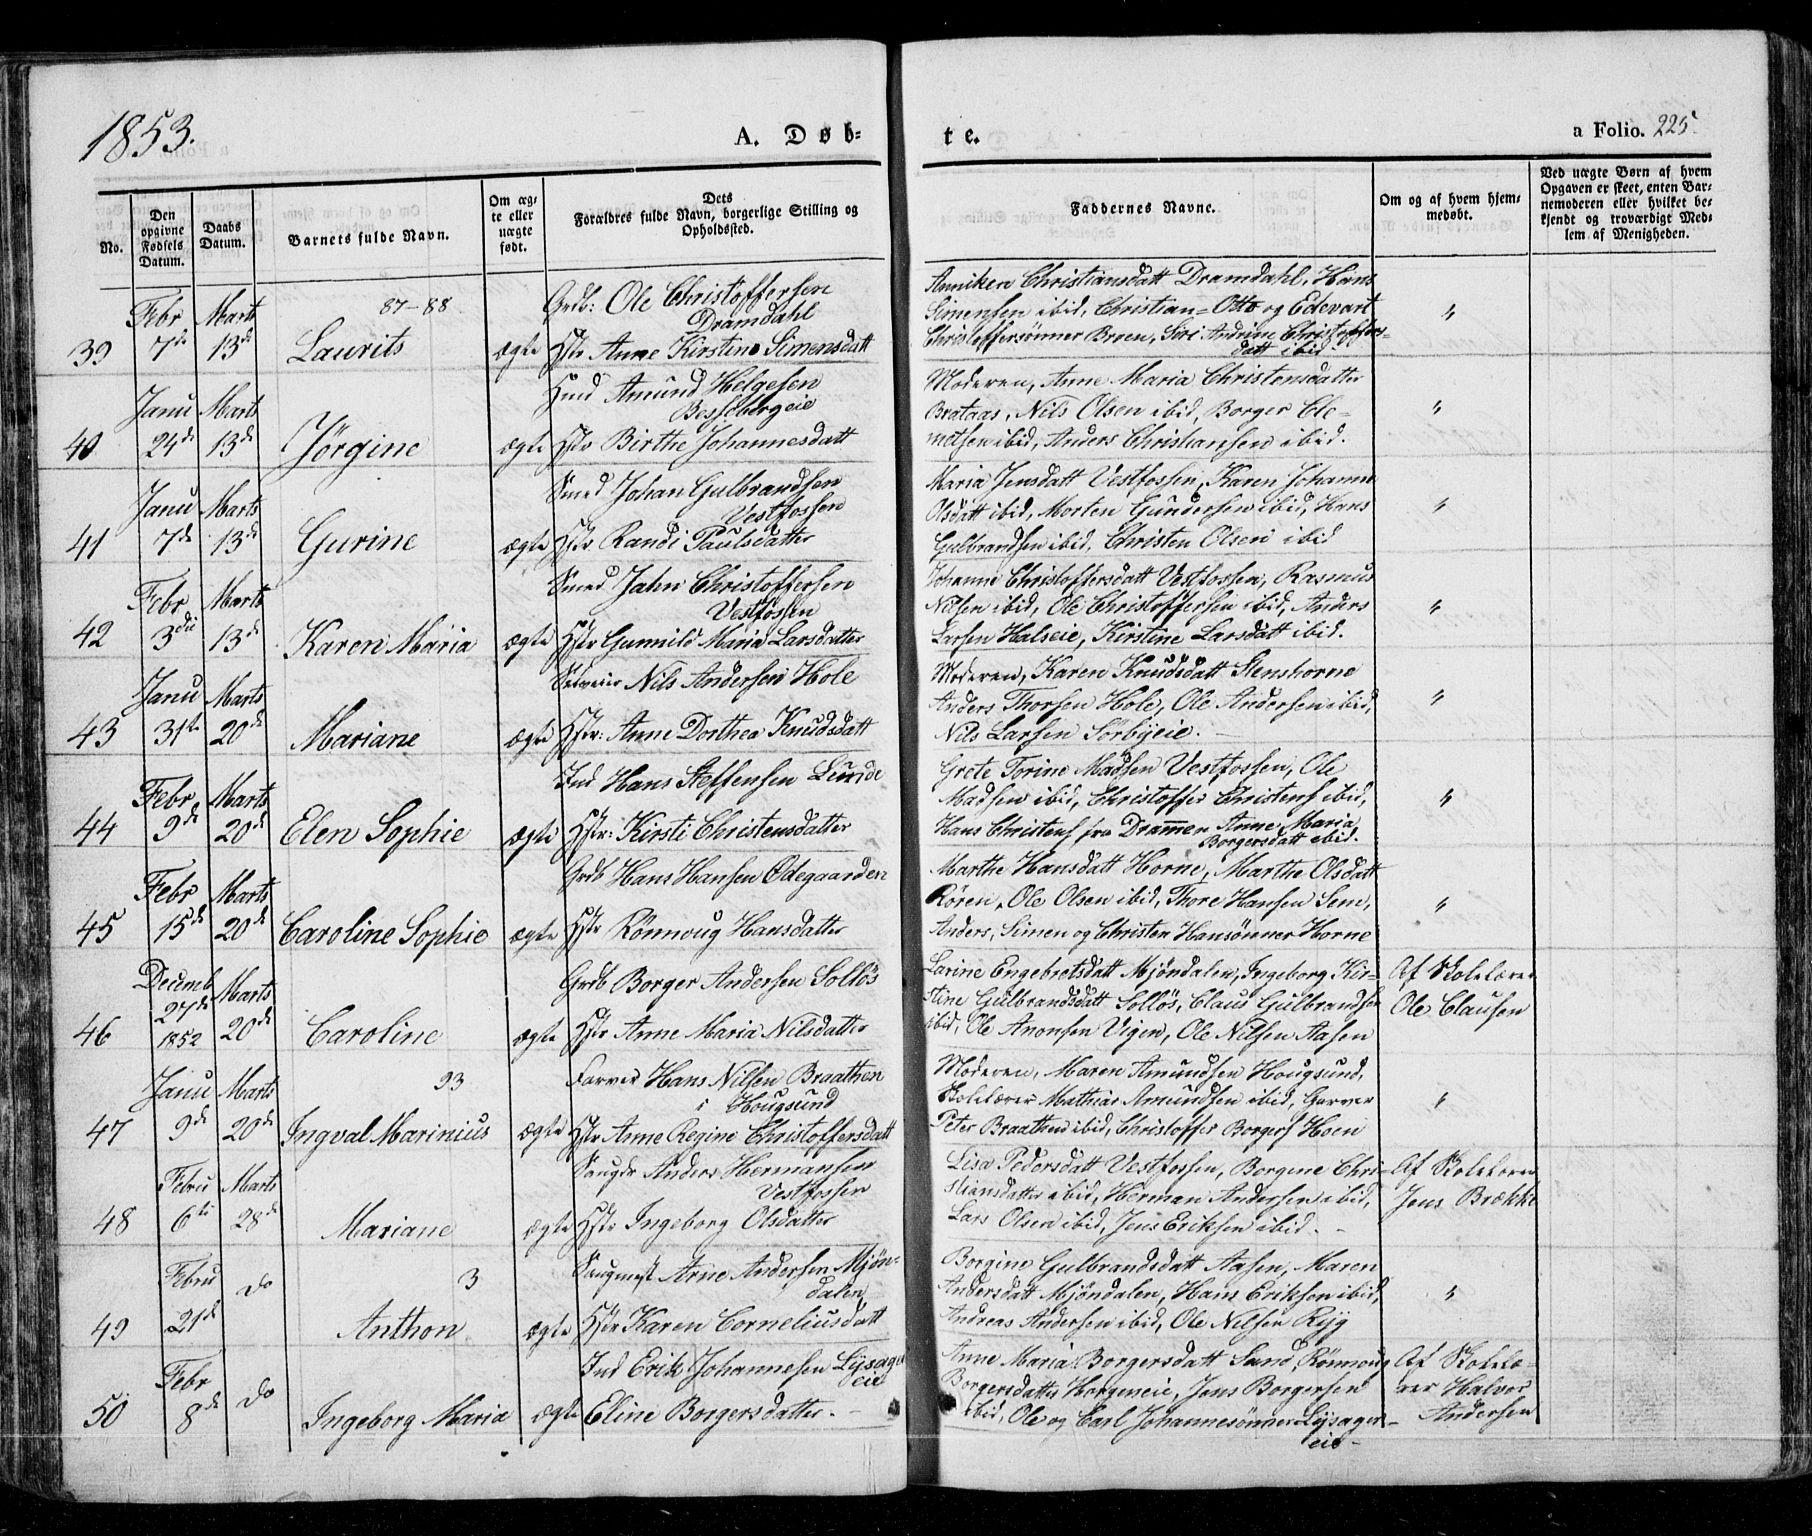 1853.
A. Døb-
te.
a Folio. 225.
No.
Den opgivne Fødsels Datum.
Daabs Datum.
Barnets fulde Navn.
Om ægte eller uægte født.
Dets Forældres fulde Navn, borgerlige Stilling og Opholdssted.
Faddernes Navne.
Om og af hvem hjemmedøbt.
Ved uægte Børn af hvem Opgaven er skeet, enten Barnemoderen eller hvilket bekjendt og troværdigt Medlem af Menigheden.
39
Febr 7de
Marts 13de
87-88
Laurits
ægte
Grdb: Ole Christoffersen
Dramdahl
Hstr Anne Kirstine Simensdatt
Anniken Christiansdatt Dramdahl, Hans
Simensen ibid, Christian-Otto og Edevart
Christoffersønner Broen, Siri Andrine Christoffers-
datt ibid
"
40
Janu 24de
Marts 13de
Jörgine
ægte
Hmd Amund Helgesen
Bessebergeie
Hstr Birthe Johannesdatt
Moderen, Anne Maria Christensdatter
Brataas, Nils Olsen ibid, Borger Cle-
metsen ibid, Anders Christiansen ibid.
"
41
Janu 7de
Marts 13de
Gurine
ægte
Smed Johan Gulbrandsen
Vestfossen
Hstr Randi Paulsdatter
Maria Jensdatt Vestfossen, Karen Johanne
Olsdatt ibid, Morten Gundersen ibid, Hans
Gulbrandsen ibid, Christen Olsen ibid
"
42
Febr 3die
Marts 13de
Karen Maria
ægte
Smed Jahn Christoffersen
Vestfossen
Hstr Gunnild Maria Larsdatter
Johanne Christoffersdatt Vestfossen, Rasmus
Nilsen ibid, Ole Christoffersen ibid, Anders
Larsen Halseie, Kirstine Larsdatt ibid.
"
43
Janu 31te
Marts 20de
Mariane
ægte
Selveier Nils Andersen Hole
Hstr: Anne Dorthea Knudsdatt
Moderen, Karen Knudsdatt Stenshorne
Anders Thorsen Hole, Ole Andersen ibid,
Nils Larsen Sörbyeie.
"
44
Febr 9de
Marts 20de
Elen Sophie
ægte
Ind Hans Steffensen Lunde
Hstr: Kirsti Christensdatter
Grete Torine Madsen Vestfossen, Ole
Madsen ibid, Christoffer Christens ibid,
Hans Christens fra Drammen Anne Maria
Borgersdatt ibid.
"
45
Febr 15de
Marts 20de
Caroline Sophie
ægte
Grdb Hans Hansen Ödegaarden
Hstr Rönnoug Hansdatter
Marthe Hansdatt Horne, Marthe Olsdatt
Rören, Ole Olsen ibid, Thore Hansen Sem,
Anders, Simen og Christen Hansönner Horne
"
46
Decemb 27de 1852
Marts 20de
Caroline
ægte
Grdb Borger Andersen Sollös
Hstr Anne Maria Nilsdatter
Larine Engebretsdatt Mjöndalen, Ingeborg Kir-
stine Gulbrandsdatt Sollös, Claus Gulbrandsen
ibid, Ole Anonsen Vigen, Ole Nilsen Aasen
Af Skolelærer
Ole Clausen
47
Janu 9de
Marts 20de
93
Ingval Marinius
ægte
Farver Hans Nilsen Braathen
i Hougsund
Hstr Anne Regine Christoffersdatt
Moderen, Maren Amundsen Hougsund,
Skolelærer Mathias Amundsen ibid, Garver
Peter Braathen ibid, Christoffer Borgers Hoen
"
48
Febru 6te
Marts 28de
Mariane
ægte
Saugdr Anders Hermansen
Vestfossen
Hstr Ingeborg Olsdatter
Lisa Pedersdatt Vestfossen, Borgene Chri-
stiansdatter ibid, Herman Andersen ibid,
Lars Olsen ibid, Jens Eriksen ibid.
Af Skolelærer
Jens Brække
49
Febru 21de
do
3
Anthon
ægte
Saugmest Arne Andersen Mjön-
dalen
Hstr Karen Corneliusdatt
Borgine Gulbrandsdatt Aasen, Maren
Andersdatt Mjöndalen, Hans Eriksen ibid,
Andreas Andersen ibid, Ole Nilsen Ryg
"
50
Febr 8de
do
Ingeborg Maria
ægte
Ind Erik Johannesen Lysager
eie
Eline Borgersdatter.
Anne Maria Borgersdatt Sand, Rönnoug
Borgersdatter Horgeneie, Jens Borgersen
ibid, Ole og Carl Johannesönner Lysager-
eie
Af Skolelæ-
rer Halvor
Andersen